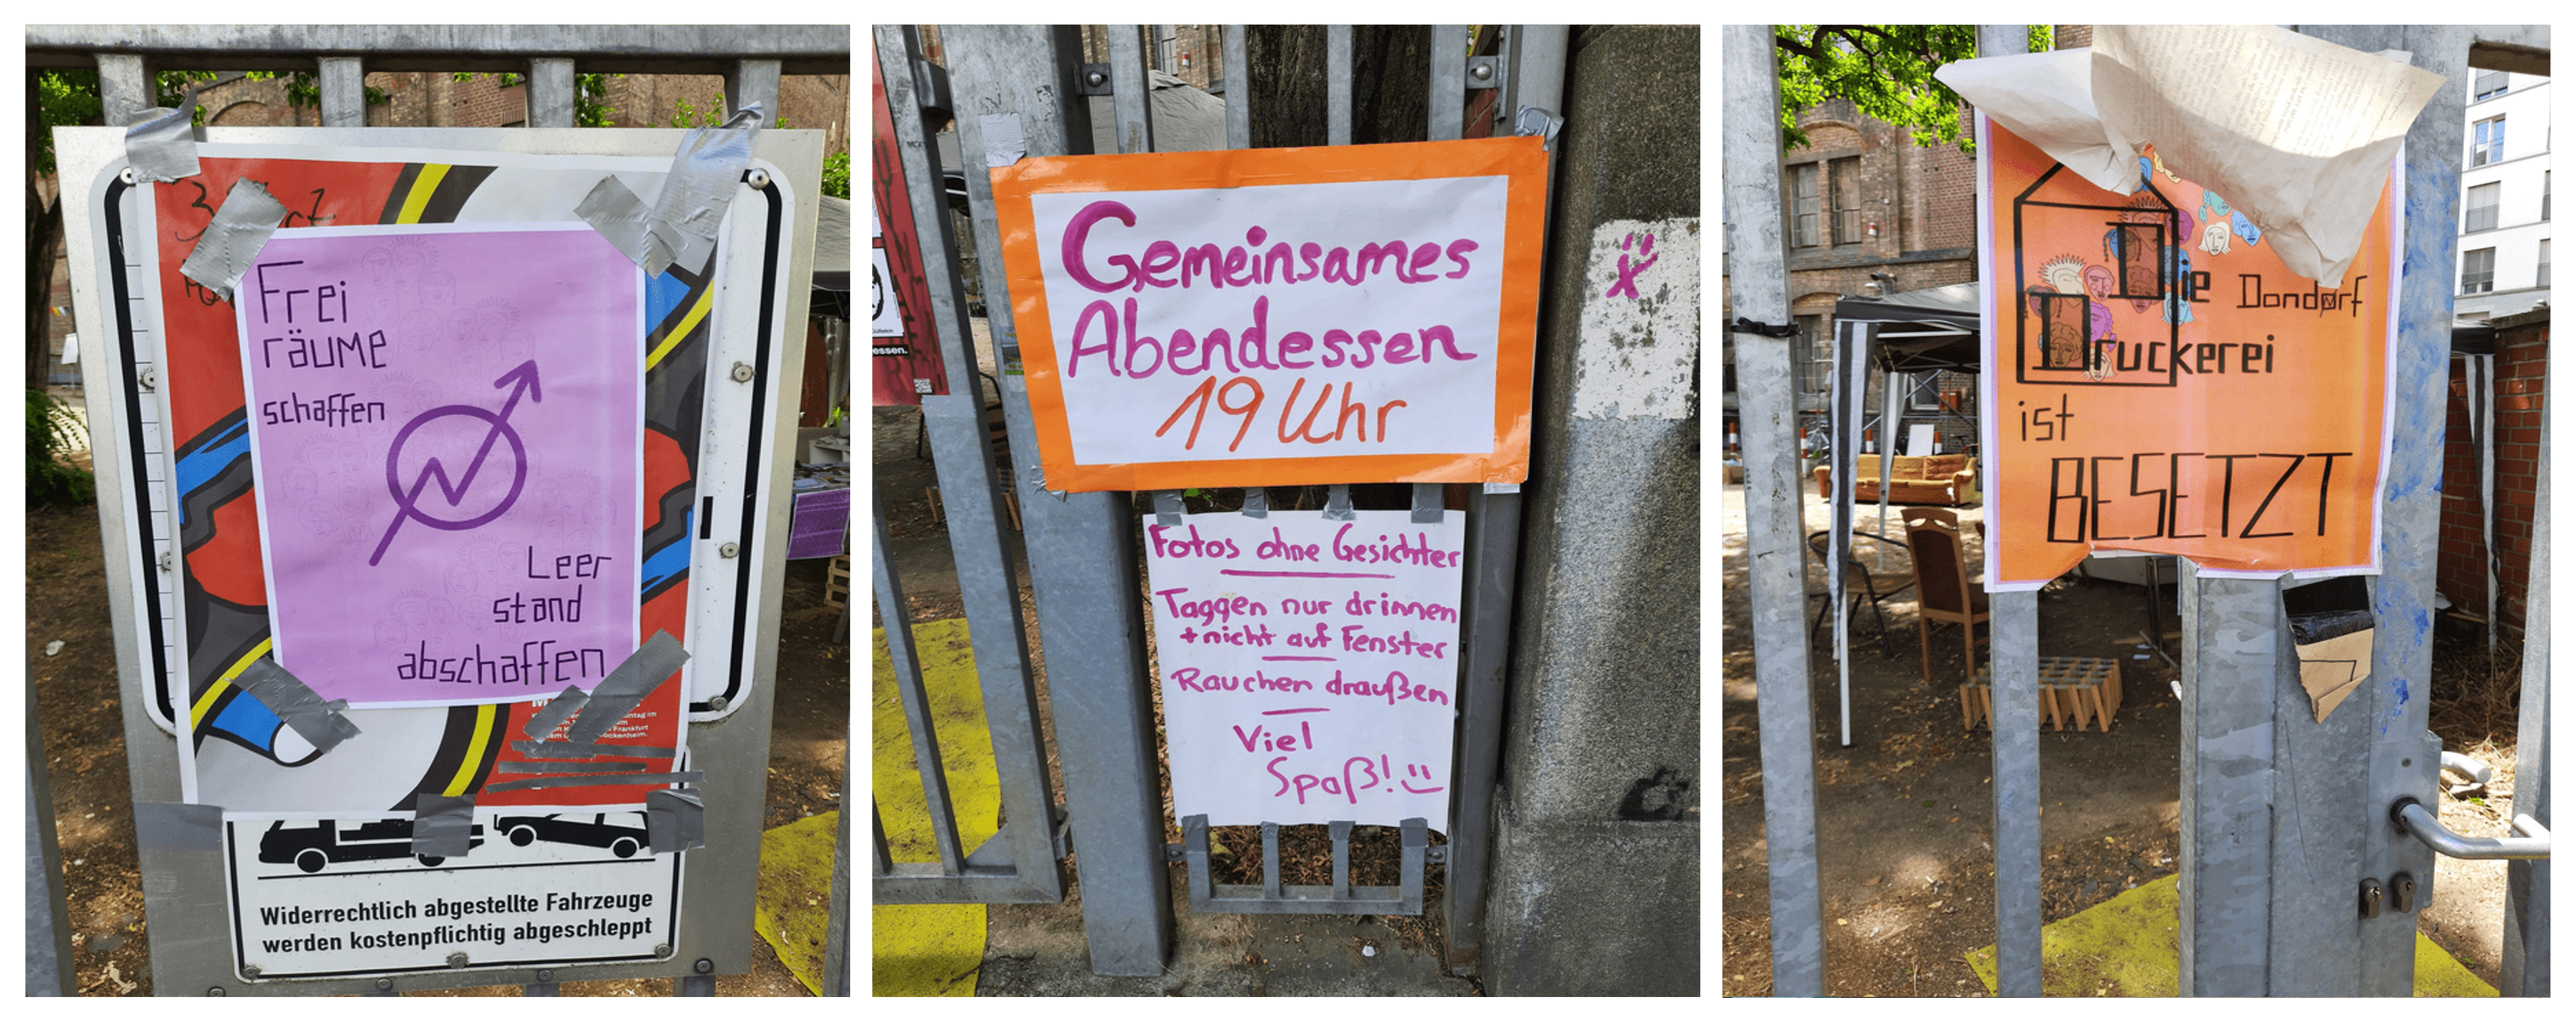 Frei
räume
schaffen
Leer
stand
abschaffen
Widerrechtlich abgestellte Fahrzeuge
werden kostenpflichtig abgeschleppt
essen.
Gemeinsames
Abendessen
19 Uhr
Fotos ohne Gesichter
Taggen nur drinnen
+ nicht auf Fenster
Rauchen draußen
Viel
Spaß!
Die Dondorf
Druckerei
ist
BESETZT